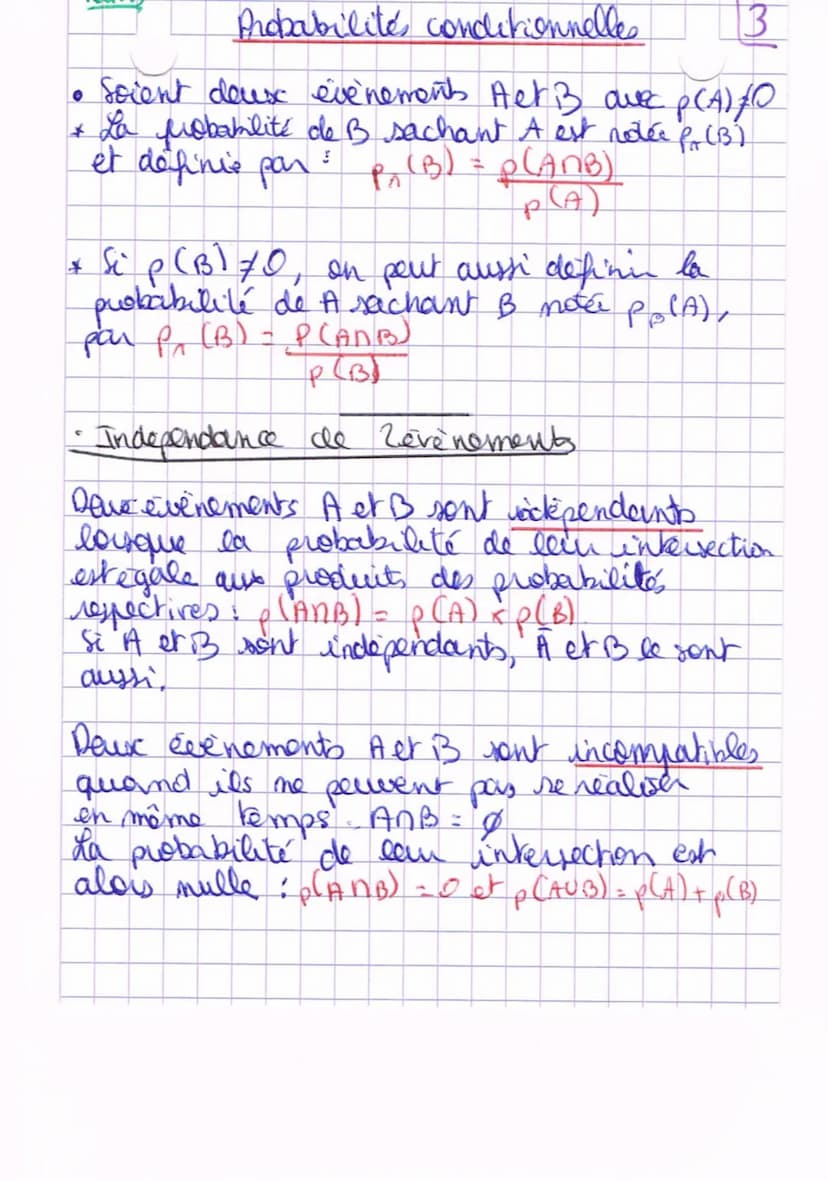 Probabilités conditionnelles 3
• Soient deux évènements A et B avec p(A)≠0
* La probabilité de B sachant A est notée p_A(B)
et définie par : p_A(B) = p(A∩B)
p(A)
* Si p(B)≠0, on peut aussi définir la
probabilité de A sachant B notée p_B(A),
par p_A(B) = P(A∩B)
p(B)
· Independance de 2 évènements
Deux évènements A et B sont indépendants
lorsque la probabilité de leur intersection
est égale aux produits des probabilités
respectives : p(A∩B) = p(A) × p(B)
Si A et B sont indépendants, Ā et B le sont
aussi.
Deux évènements A et B sont incompatibles
quand ils ne peuvent pas se réaliser
en même temps. A∩B = ∅
La probabilité de leur intersection est
alors nulle : p(A∩B) = 0 et p(A∪B) = p(A) + p(B)